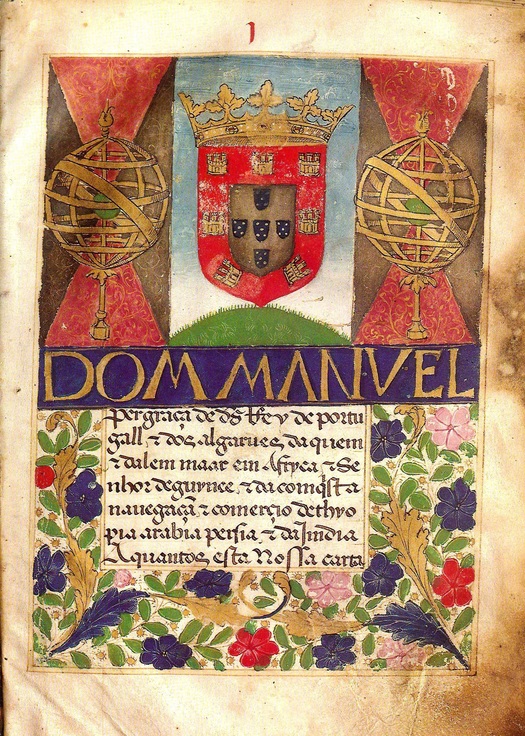 1
DOM MANVEL
per graça de ds Rey de portu
gall & dos algarues da quem
& dalem maar em Afryca & Se
nhor de guynee & da comqsta
nauegaçã & comercio dethyo
pia arabia persia & da Jndia
A quantos esta Nossa carta